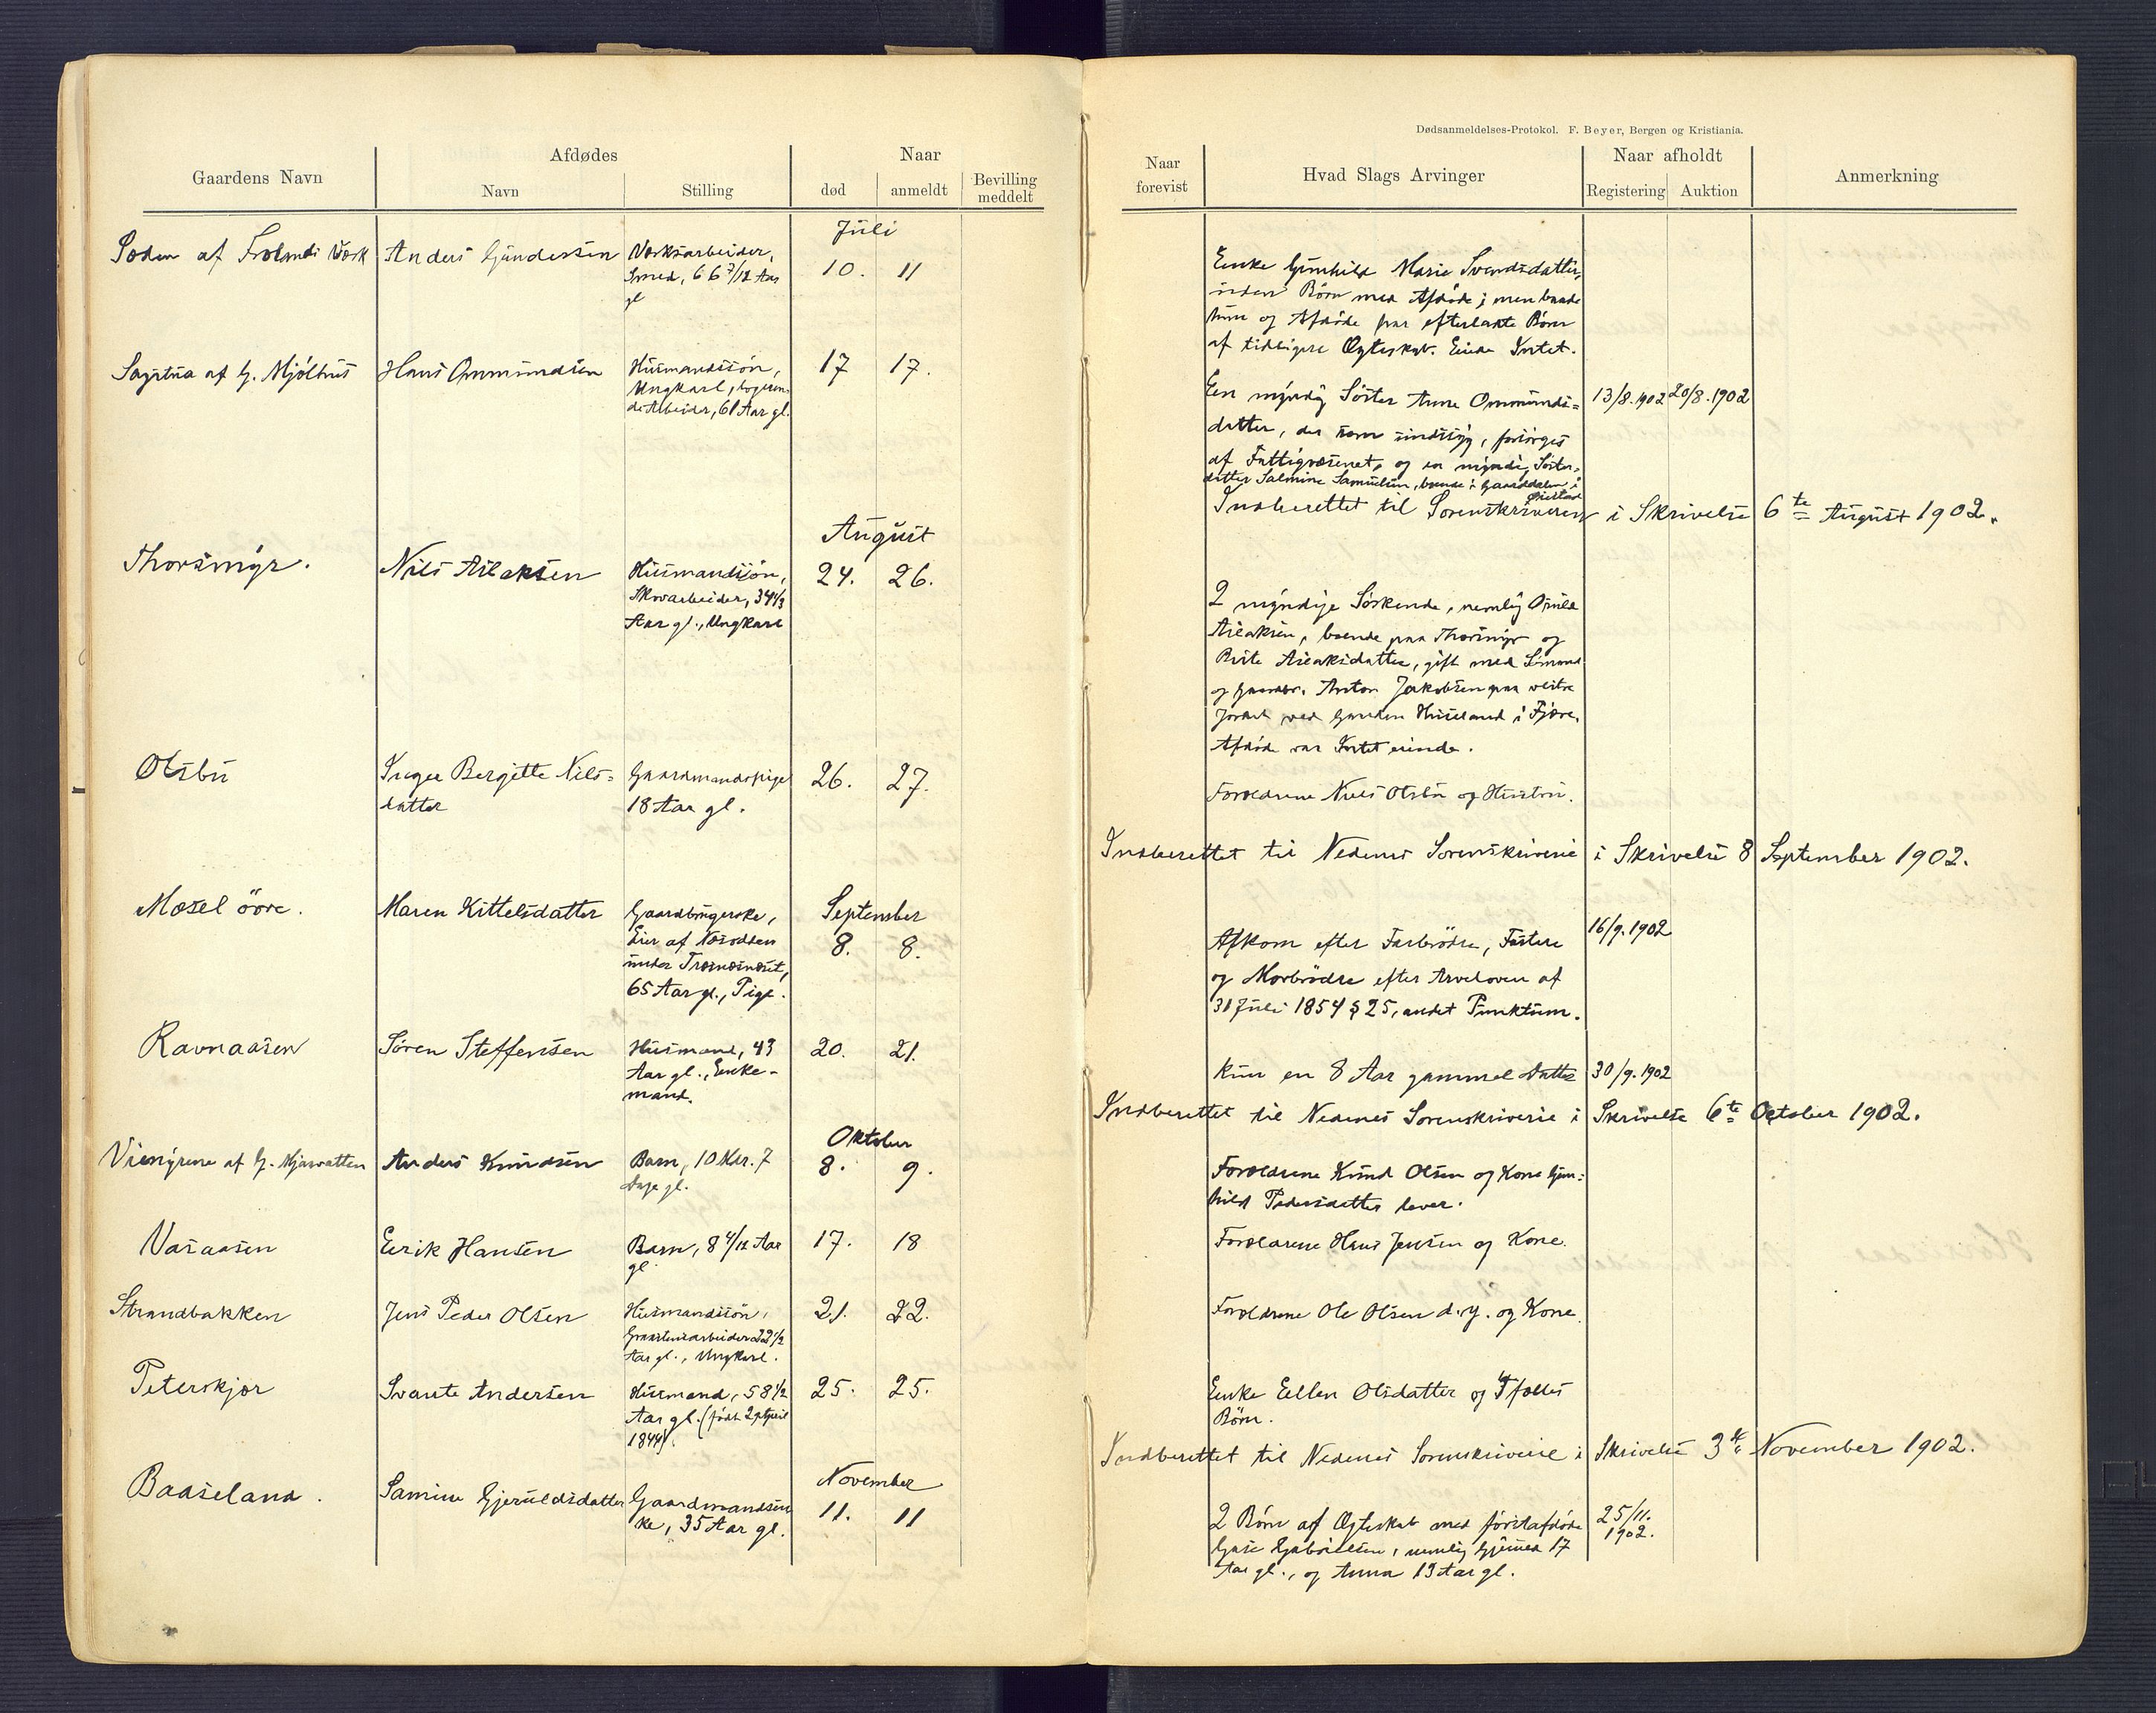 Dødsanmeldelses-Protokol. F. Beyer, Bergen og Kristiania.
Gaardens Navn
Afdødes
Navn
Stilling
Naar
død
anmeldt
Bevilling
meddelt
Naar
forevist
Hvad Slags Arvinger
Naar afholdt
Registering
Auktion
Anmerkning
Juli
af Frolands Værk
Anders Gundersen
Værksarbeider,
Smed, 66 7/12 Aar
gl
10. 11
Enke Gunhild Marie Svendsdatter,
uden Børn med Afdøde; men baade
hun og Afdøde har efterladte Børn
af tidligere Ægteskab. Eiede Intet.
af G. Mjölhus
Hans Ommundsen
Husmandssön,
Ungkarl, logeren
de Arbeider, 61 Aar gl.
17 17.
En myndig Söster Anne Ommunds=
datter, der som sindssyg, forsörges
af Fattigvæsenet, og en myndig Söster-
datter Salmine Samuelsen, boende i Gaarddalen i
Øiestad
13/8. 1902
20/8. 1902
Indberettet til Sorenskriveren i Skrivelse 6te August 1902.
August
Thorsmyr.
Nils Aslaksen
Husmandssön,
Skovarbeider, 34 1/3
Aar gl., Ungkarl
24. 26.
2 myndige Söskende, nemlig
Aslaksen, boende paa Thorsmyr og
Birte Aslaksdatter, gift med Sömand
og Anton Jakobsen paa vestre
ved Gaarden i Fjære.
Afdöde var Intet eiende.
Olsbu
Inger Bergitte Nils=
datter
Gaardmandspige
18 Aar gl.
26. 27.
Forældrene Niels Olsbu og Hustru.
Indberettet til Nedenes Sorenskriverie i Skrivelse 8 September 1902.
September
Mæsel övre.
Maren Kittelsdatter
Gaardbrugerske,
Eier af
under
65 Aar gl., Pige.
8. 8.
Afkom efter Farbrödre, Fastere
og Morbrödre efter Arveloven af
31 Juli 1854 § 25, andet Punktum.
16/9. 1902
Ravnaasen
Sören Steffensen
Husmand, 43
Aar gl., Enke-
mand.
20. 21.
Kun en 8 Aar gammel Datter
30/9. 1902
Indberettet til Nedenes Sorenskriverie i Skrivelse 6te October 1902.
Oktober
af G. Mjaavatten
Anders Knudsen
Barn, 10 Mdr. 7
Dage gl.
8. 9.
Forældrene Knud Olsen og Kone Gun=
hild Pedersdatter lever.
Vasaasen
Eerik Hansen
Barn, 8 4/12 Aar
gl
17. 18
Forældrene Hans Jensen og Kone.
Strandbakken
Jens Peder Olsen
Husmandssön,
22 1/2
Aar gl., Ungkarl.
21. 22.
Forældrene Ole Olsen d.y. og Kone.
Peterskjær
Svante Andersen
Husmand, 58 1/2
Aar gl. (född 2 April
1844).
25. 25.
Enke Ellen Olsdatter og fælles
Börn.
Indberettet til Nedenes Sorenskriverie i Skrivelse 3de November 1902.
November
Baaseland.
Samine Gjeruldsdatter
Gaardmandsen
ke, 35 Aar gl.
11. 11
2 Börn af Ægteskab med förstafdöde
Gabrielsen, nemlig 17
Aar gl., og Anna 13 Aar gl.
25/11.
1902.